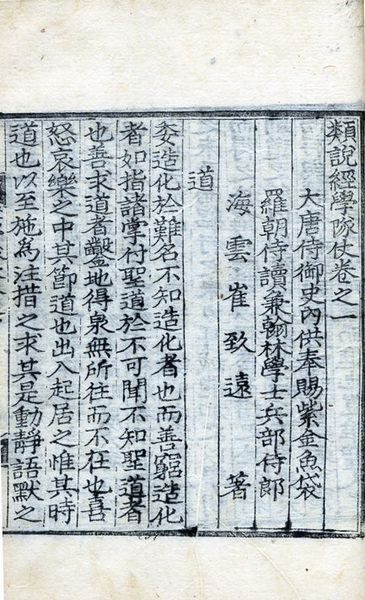 類說經學隊仗卷之一
大唐侍御史內供奉賜紫金魚袋
羅朝侍讀兼翰林學士兵部侍郎
海雲崔致遠 著
道
委造化於難名不知造化者也而善窮造化
者如指諸掌付聖道於不可聞不知聖道者
也善求道者鑿地得泉無所往而不在也喜
怒哀樂之中其節道也出入起居之惟其時
道也以至施為注措之求其是動靜語默之